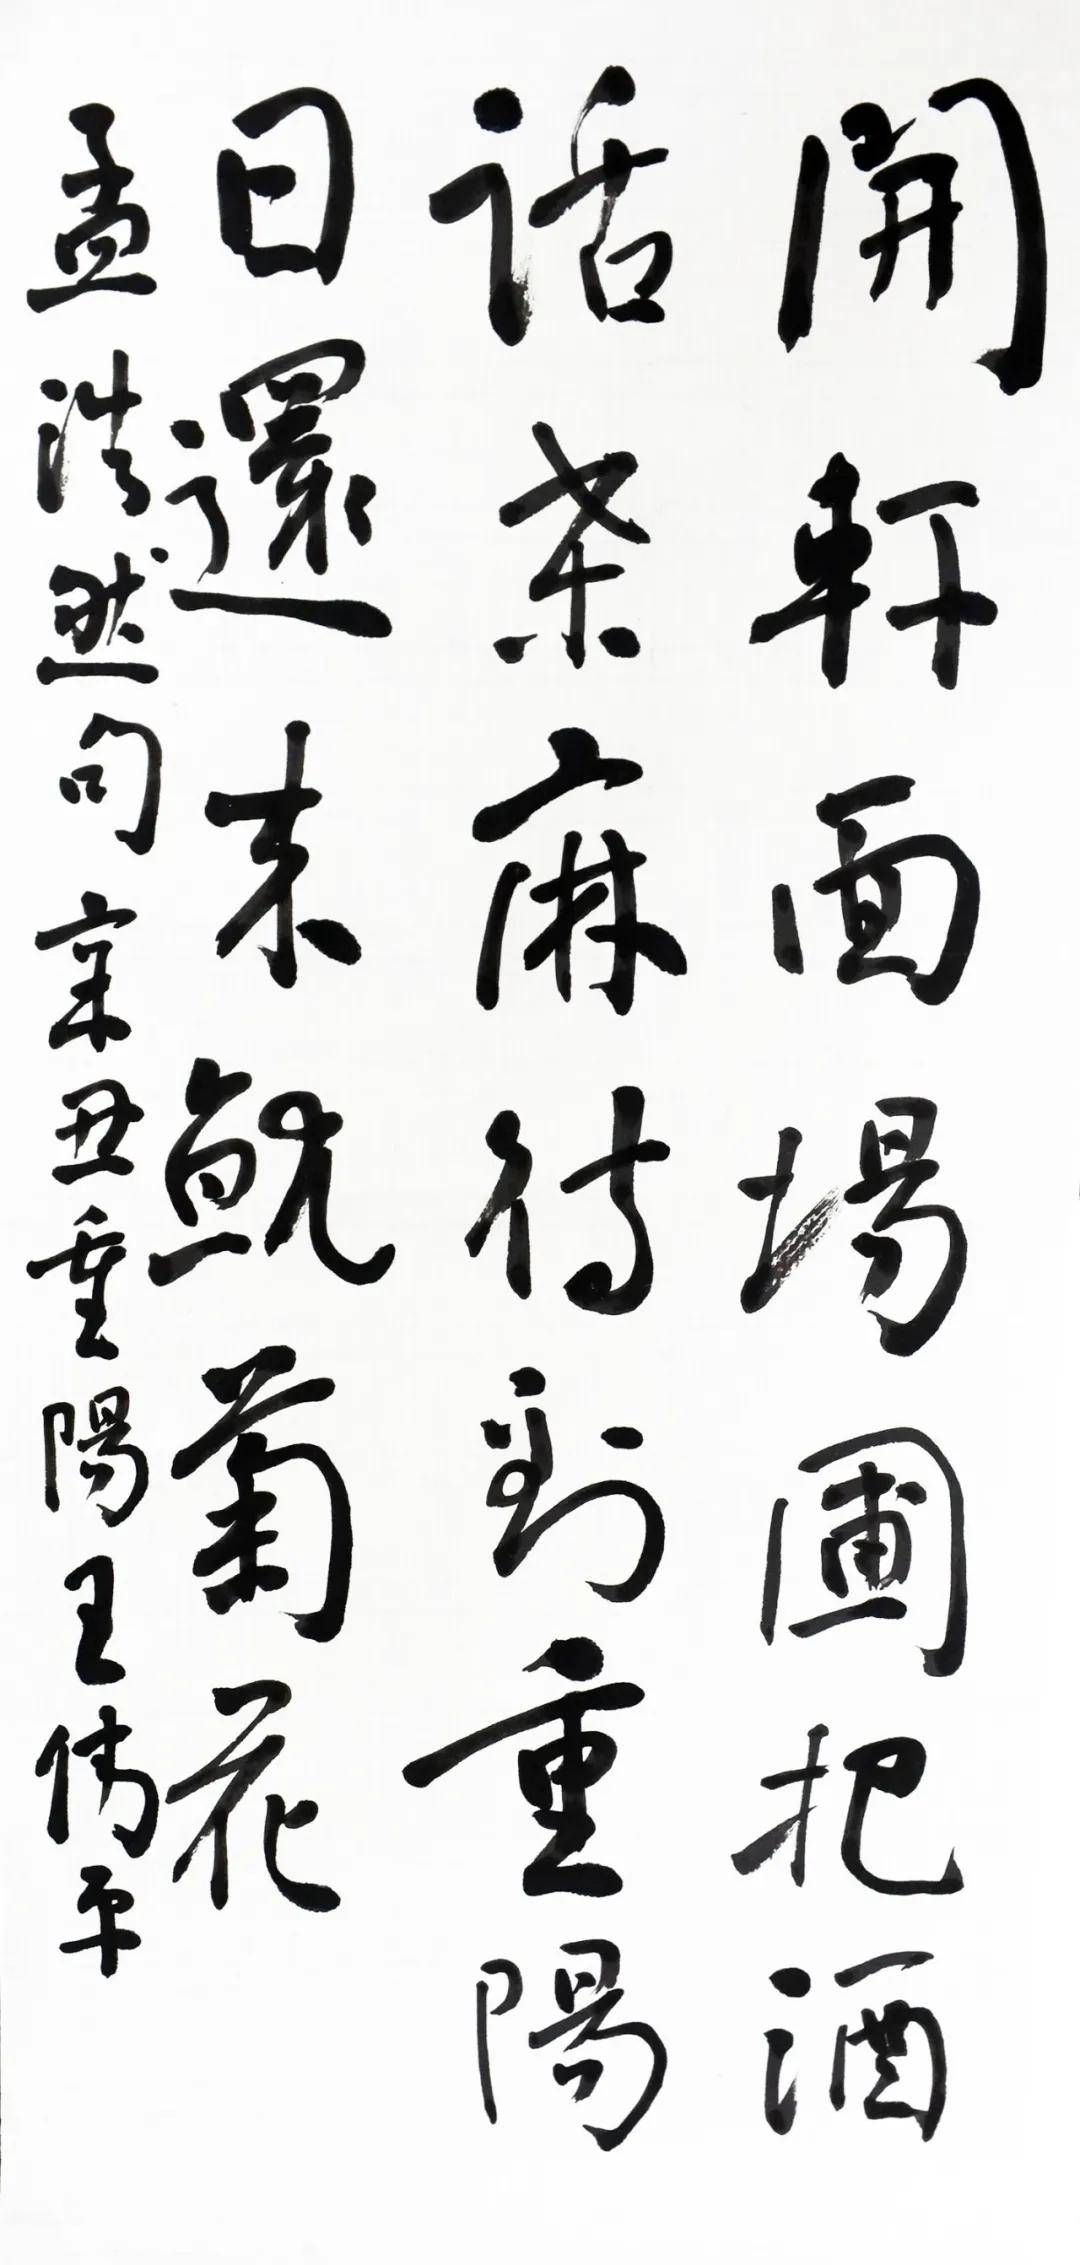 開軒面場圃把酒
話桒麻待到重陽
日還来就菊花
孟浩然句辛丑重陽王偉平